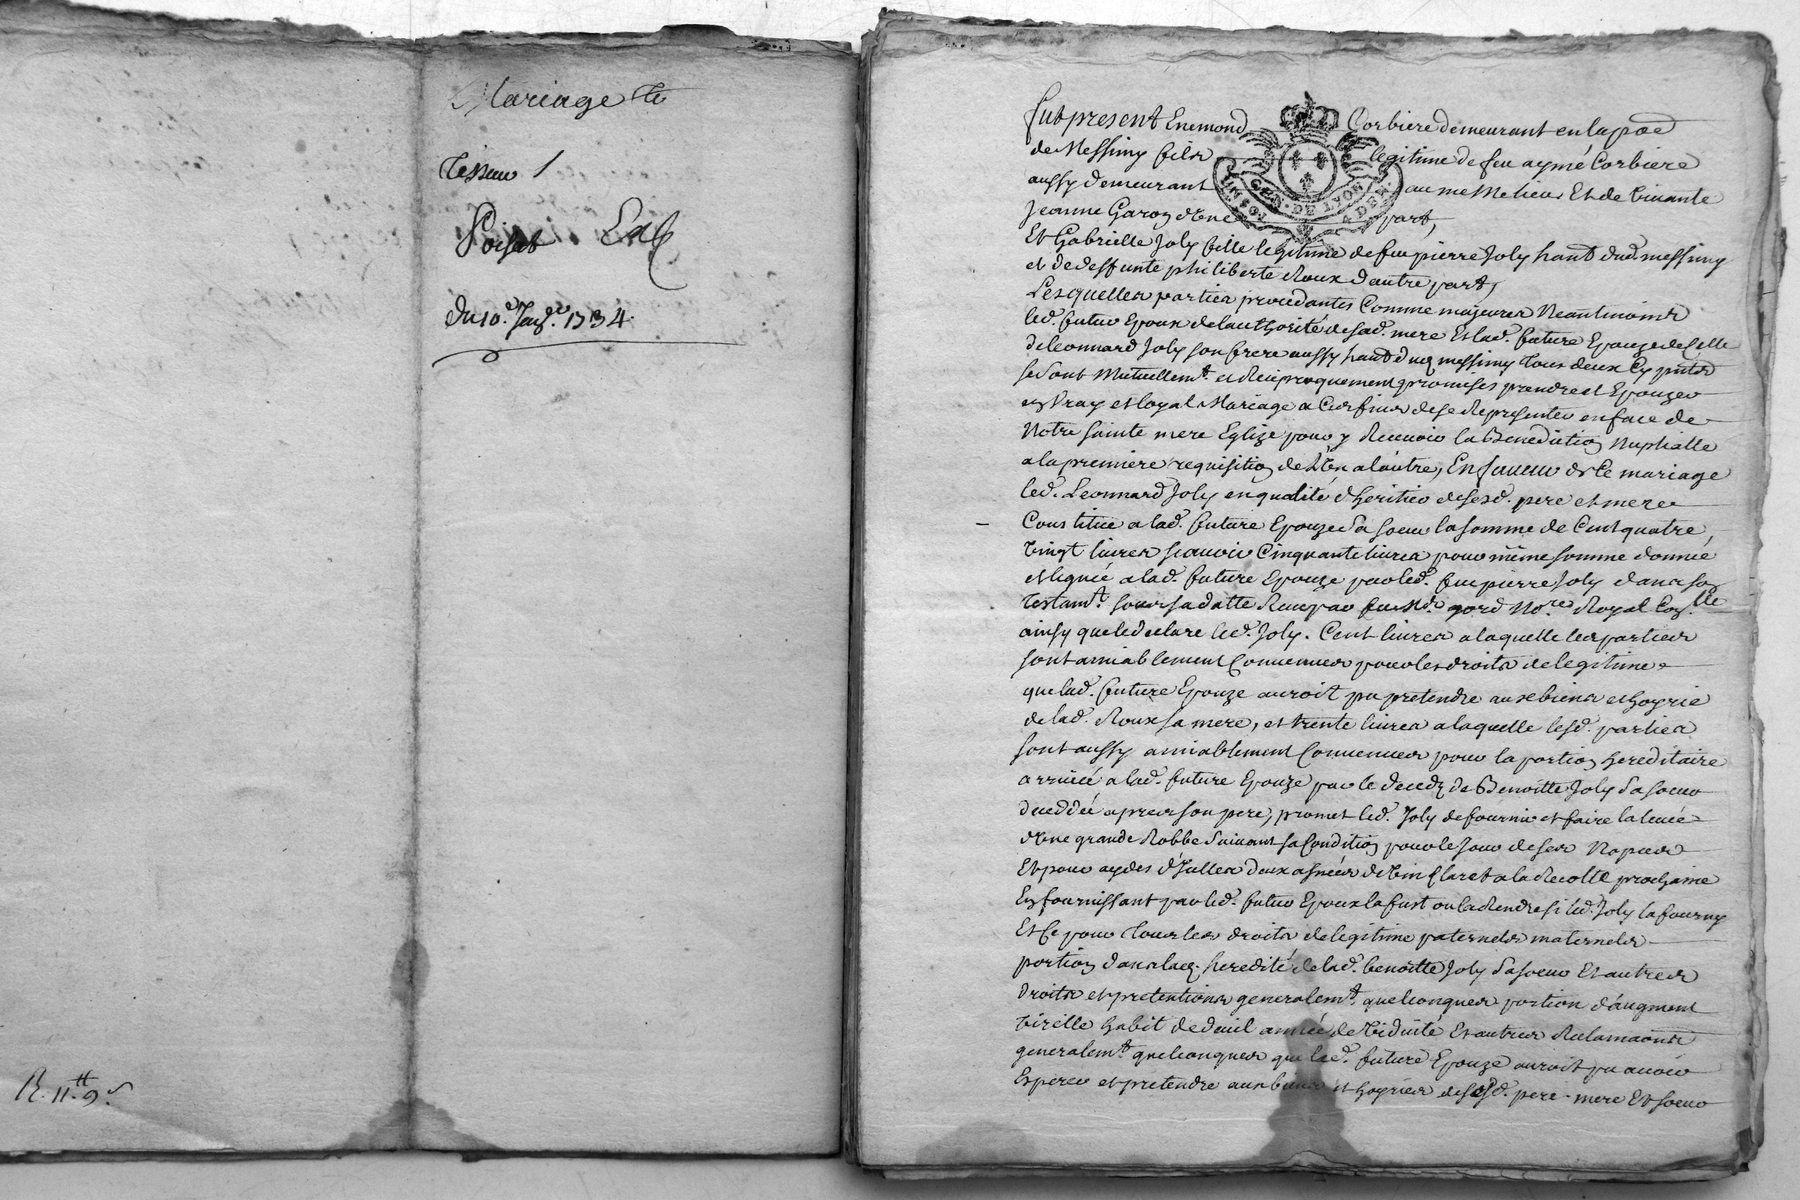 Mariage de
Tisseur
Poisat
du 10.e Janv.er 1734.
R. 11.tt 9.s
Fut present Enemond Corbiere demeurant en la paroe
de Messimy fils legitime de feu aymé Corbiere
aussy demeurant au meme lieu Et de vivante
Jeanne Garoy d'Une part,
GEN. DE LYON
Et Gabrielle Joly fille legitime de feu pierre Joly habt dud. messimy
et de deffunte philiberte Roux d'autre part,
Lesquelles parties procedantes Comme majeures Neantmoins
led. futur Epoux de l'authorité de sad. mere Et lad. future Epouze de Celle
de Leonnard Joly son frere aussy habt dud. messimy tous deux Cy pnts
se sont Mutuellemt. et Reciproquement promises prendre et Epouzer
en Vray et loyal Mariage a Ces fins de se Representer en face de
Notre sainte mere Eglize pour y Recevoir la Benediction Nuptialle
a la premiere requisition de L'Un a l'autre, En faveur de Ce mariage
led. Leonnard Joly en qualité d'heritier de sesd. pere et mere
Constitue a lad. future Epouze Sa soeur la somme de Cent quatre
Vingt livres scavoir Cinquante livres pour même somme donnée
et leguée a lad. future Epouze par led. feu pierre Joly dans son
Testamt. sous sa datte Receu par feu Me. gord Nore. Royal
ainsy que le declare led. Joly. Cent livres a laquelle les parties
sont amiablement Convenues pour les droits de legitime
que lad. future Epouze auroit pu pretendre aux biens et hoyrie
de lad. Roux sa mere, et trente livres a laquelle lesd. parties
sont aussy amiablement Convenues pour la portion hereditaire
arrivée a lad. future Epouze par le decedz de Benoitte Joly Sa soeur
decedée apres son pere, promet led. Joly de fournir et faire la levée
d'Une grande Robbe Suivant sa Condition pour le Jour de ses Nopces
Et pour aydes d'Icelles deux asnées de Vin Claret a la Recolte prochaine
En fournissant par led. futur Epoux la fust ou la Rendre si led. Joly la fourny
Et Ce pour tous les droits de legitime paternels maternels
portion dans la heredité de lad. benoitte Joly Sa soeur Et autres
droits et pretentions generalemt. quelconques portion d'augment
Virelle habit de deuil année de Viduité Et autres Reclamaõns
generalemt. quelconques que lad. future Epouze auroit pu avoir
Esperer et pretendre aux biens et hoyries de sesd. pere mere Et soeur